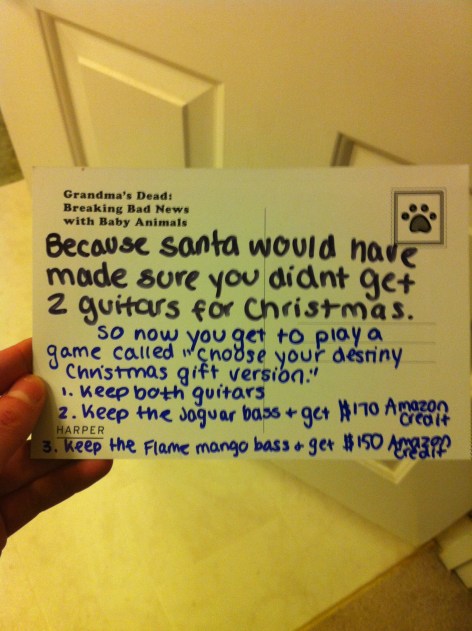 Grandma's Dead:
Breaking Bad News
with Baby Animals
Because santa would have
made sure you didnt get
2 guitars for Christmas.
So now you get to play a
game called "choose your destiny
Christmas gift version."
1. Keep both guitars
2. Keep the Jaguar bass + get $170 Amazon
Credit
HARPER
3. Keep the Flame mango bass + get $150 Amazon
Credit